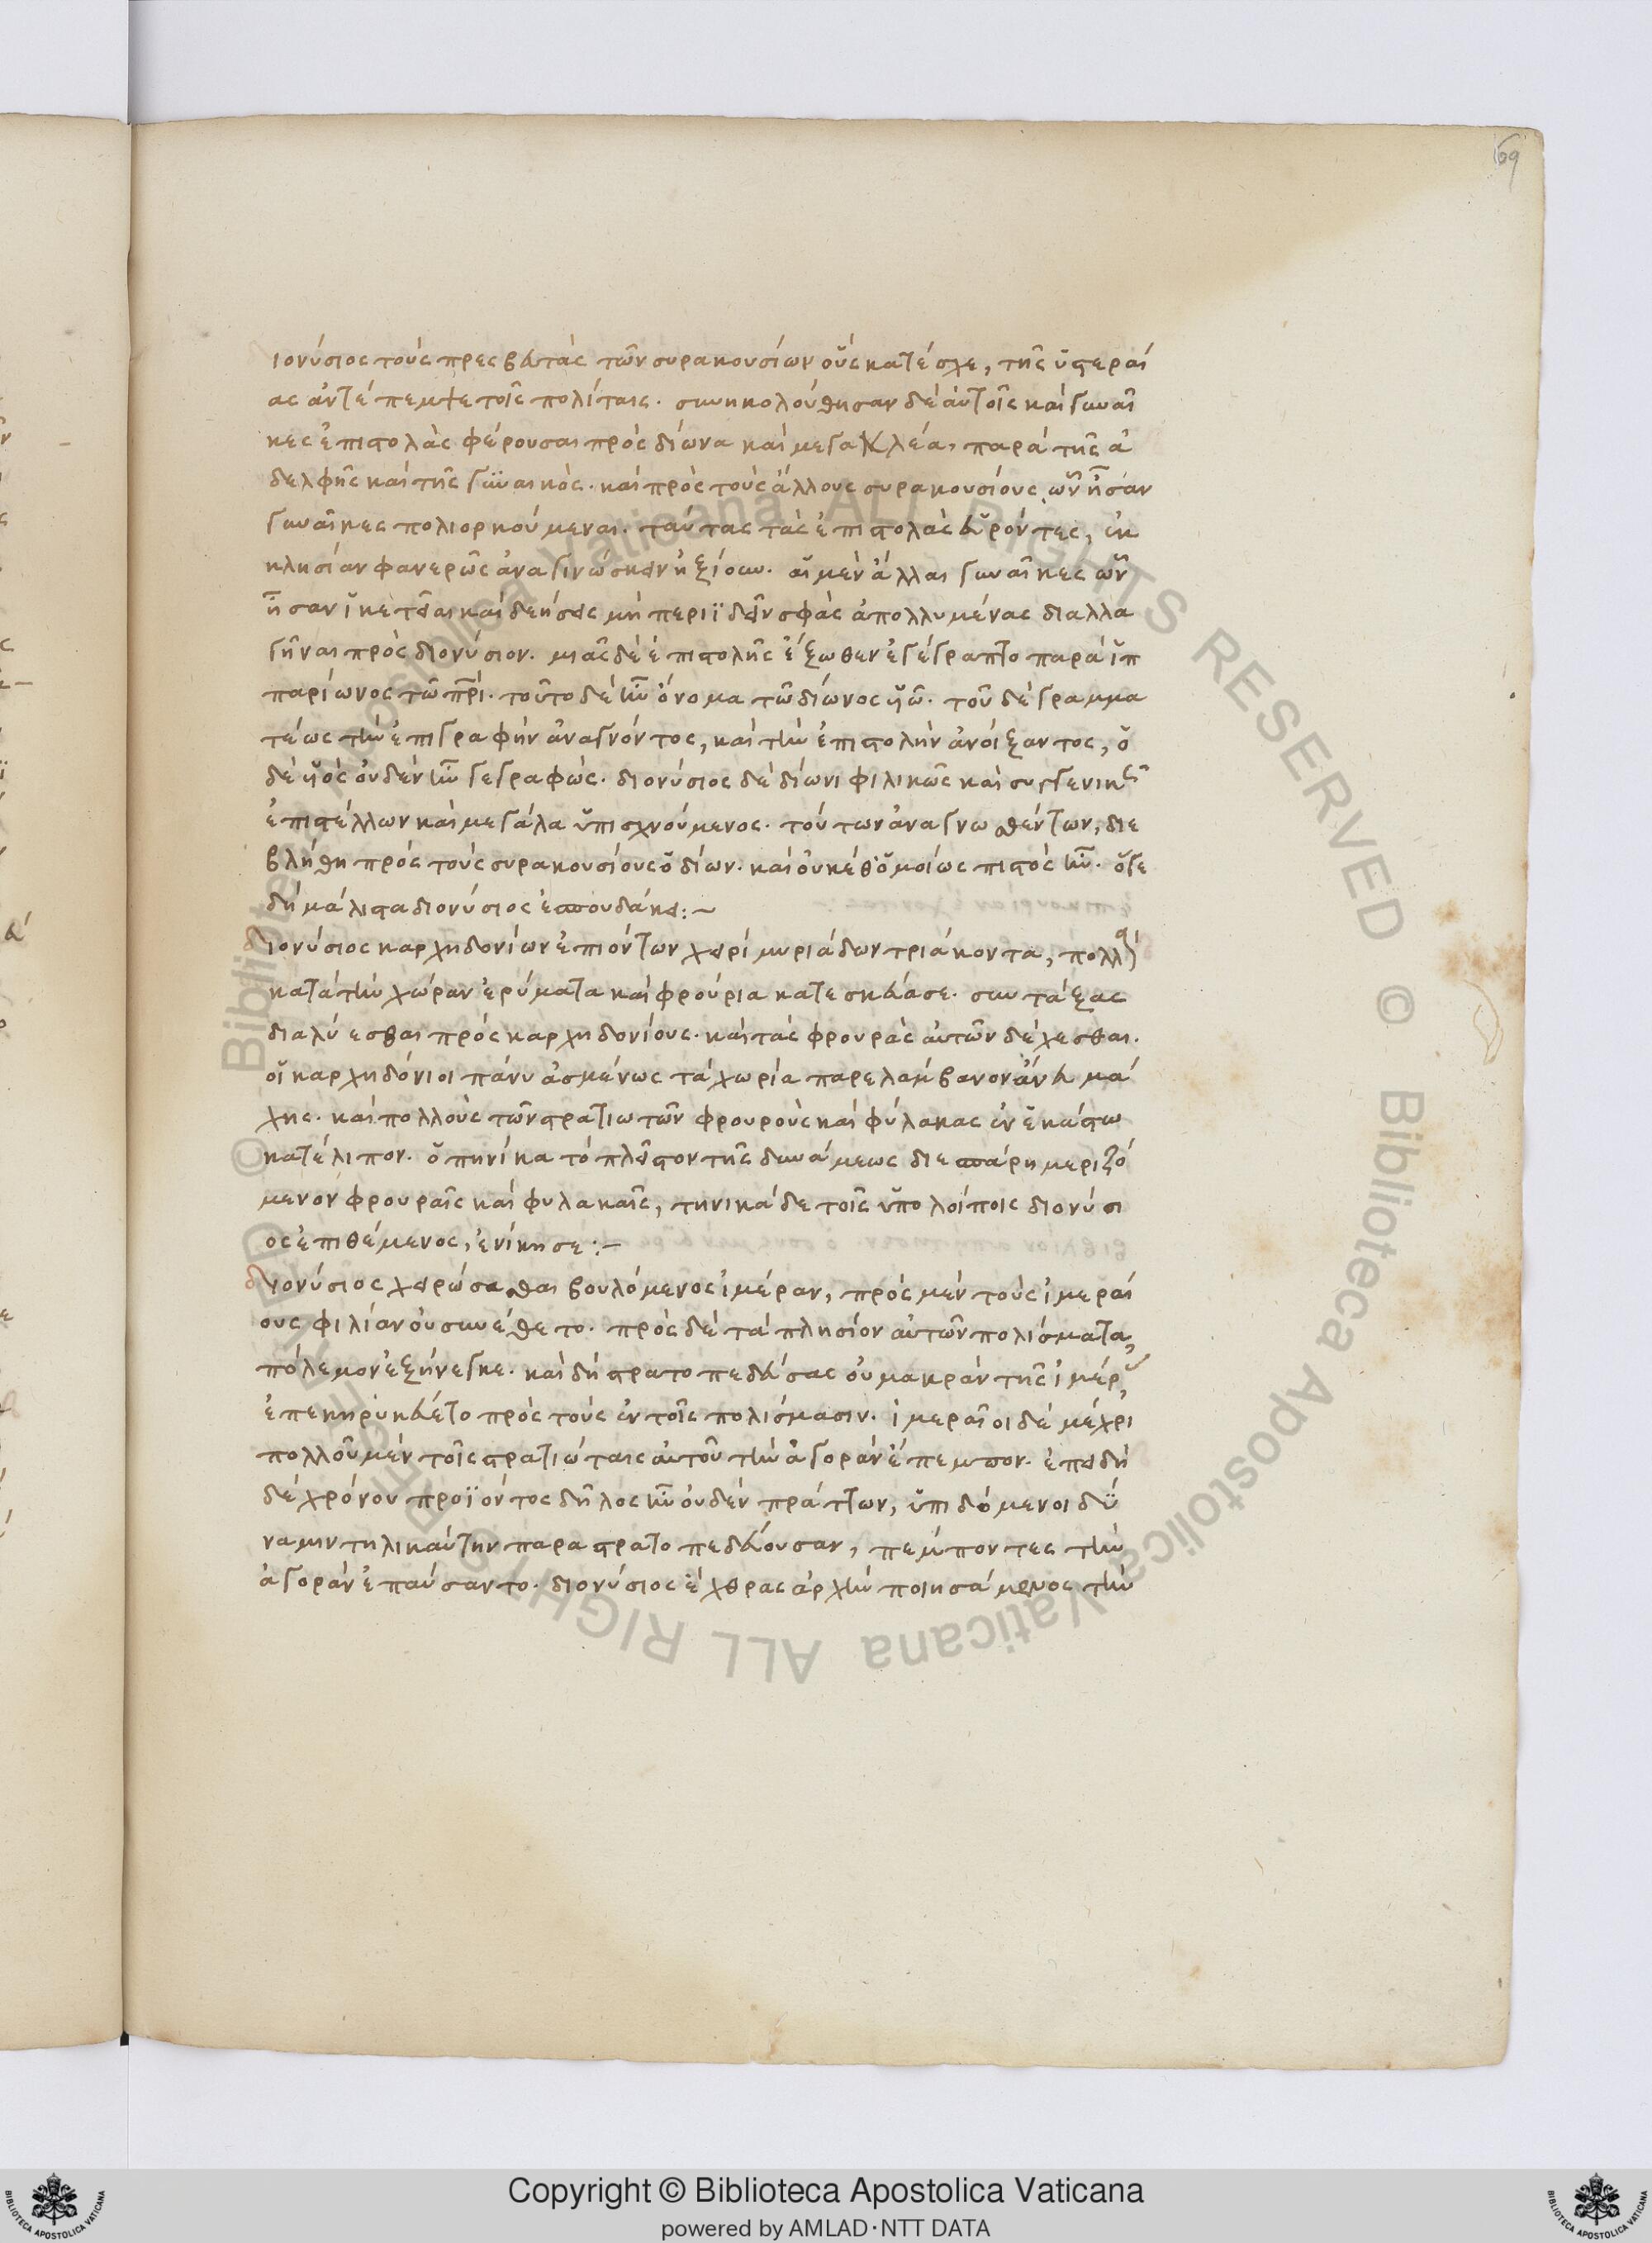 169
ιονύσιος τοὺς πρεσβευτὰς τῶν συρακουσίων οὓς κατέσχε, τῆς ὑστεραί
ας ἀντέπεμψε τοῖς πολίταις. συνηκολούθησαν δὲ αὐτοῖς καὶ γυναῖ
κες ἐπιστολὰς φέρουσαι πρὸς δίωνα καὶ μεγακλέα, παρὰ τῆς ἀ
δελφῆς καὶ τῆς γυναικός. καὶ πρὸς τοὺς ἄλλους συρακουσίους ὧν ἦσαν
γυναῖκες πολιορκούμεναι. ταύτας τὰς ἐπιστολὰς εὑρόντες, ἐκ
κλησίαν φανερῶς ἀναγινώσκειν ἠξίουν. αἱ μὲν ἄλλαι γυναῖκες ὧν
ἦσαν ἱκετεῖαι καὶ δεήσεις μὴ περιϊδεῖν σφὰς ἀπολλυμένας διαλλα
γῆναι πρὸς διονύσιον. μιᾶς δὲ ἐπιστολῆς ἔξωθεν ἐγέγραπτο παρὰ ἱπ
παρίωνος τῶ πρὶ. τοῦτο δὲ ἦν ὄνομα τῶ δίωνος υἱῶ. τοῦ δὲ γραμμα
τέως τὴν ἐπιγραφὴν ἀναγνόντος, καὶ τὴν ἐπιστολὴν ἀνοίξαντος, ὁ
δὲ υἱὸς οὐδὲν ἦν γεγραφώς. διονύσιος δὲ δίωνι φιλικῶς καὶ συγγενικῶς
ἐπιστέλλων καὶ μεγάλα ὑπισχνούμενος. τούτων ἀναγνωσθέντων, διε
βλήθη πρὸς τοὺς συρακουσίους ὁ δίων. καὶ οὐκέθ' ὁμοίως πιστὸς ἦν. ὅ γε
δὴ μάλιστα διονύσιος ἐσπουδάκει:~
διονύσιος καρχηδονίων ἐπιόντων χειρὶ μυριάδων τριάκοντα, πολλὰ
κατὰ τὴν χώραν ἐρύματα καὶ φρούρια κατεσκεύασε. συντάξας
διαλύεσθαι πρὸς καρχηδονίους. καὶ τὰς φρουρὰς αὐτῶν δέχεσθαι.
οἱ καρχηδόνιοι πάνυ ἀσμένως τὰ χωρία παρελάμβανον ἄνευ μά
χης. καὶ πολλοὺς τῶν στρατιωτῶν φρουροὺς καὶ φύλακας ἐν ἑκάστω
κατέλιπον. ὁπηνίκα τὸ πλεῖστον τῆς δυνάμεως διεσπάρη μεριζό
μενον φρουραῖς καὶ φυλακαῖς, τηνικάδε τοῖς ὑπολοίποις διονύσι
ος ἐπιθέμενος, ἐνίκησε:~
διονύσιος χειρώσασθαι βουλόμενος ἱμέραν, πρὸς μὲν τοὺς ἱμεραί
ους φιλίαν οὐ συνέθετο. πρὸς δὲ τὰ πλησίον αὐτῶν πολίσματα,
πόλεμον ἐξήνεγκε. καὶ δὴ στρατοπεδεύσας οὐ μακρὰν τῆς ἱμέρας,
ἐπεκηρυκεύετο πρὸς τοὺς ἐν τοῖς πολίσμασιν. ἱμεραῖοι δὲ μέχρι
πολλοῦ μὲν τοῖς στρατιώταις αὐτοῦ τὴν ἀγορὰν ἔπεμπον. ἐπειδὴ
δὲ χρόνου προϊόντος δῆλος ἦν οὐδὲν πράττων, ὑπιδόμενοι δύ
ναμιν τηλικαύτην παραστρατοπεδεύουσαν, πέμποντες τὴν
ἀγορὰν ἐπαύσαντο. διονύσιος ἔχθρας ἀρχὴν ποιησάμενος τὴν
© Biblioteca Apostolica Vaticana ALL RIGHTS RESERVED © Biblioteca Apostolica Vaticana ALL RIGHTS RESERVED
Copyright © Biblioteca Apostolica Vaticana
powered by AMLAD·NTT DATA
BIBLIOTECA APOSTOLICA VATICANA
BIBLIOTECA APOSTOLICA VATICANA